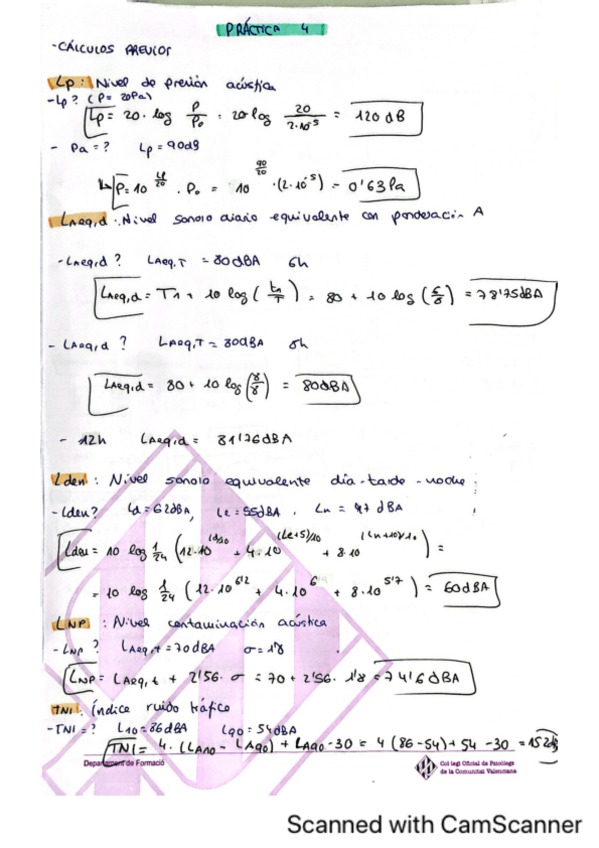 PRÁCTICA 4
- CÁLCULOS PREVIOS
Lp: Nivel de presión acústica
- Lp? (P = 20Pa)
Lp = 20 · log P/Po = 20 log 20/2·10^-5 = 120 dB
- Pa = ? Lp = 90dB
P = 10^(Lp/20) · Po = 10^(90/20) · (2·10^-5) = 0'63 Pa
LAeq,d: Nivel sonoro diario equivalente con ponderación A
- LAeq,d? LAeq,T = 80dBA 6h
LAeq,d = T1 + 10 log (tn/T) = 80 + 10 log (6/8) = 78'75dBA
- LAeq,d? LAeq,T = 80dBA 8h
LAeq,d = 80 + 10 log (8/8) = 80dBA
- 12h LAeq,d = 81'76dBA
Lden: Nivel sonoro equivalente día-tarde-noche
- Lden? Ld = 62dBA, Le = 55dBA, Ln = 47 dBA
Lden = 10 log 1/24 (12·10^(Ld/10) + 4·10^((Le+5)/10) + 8·10^((Ln+10)/10)) =
= 10 log 1/24 (12·10^6'2 + 4·10^6 + 8·10^5'7) = 60dBA
LNP: Nivel contaminación acústica
- LNP? LAeq,t = 70dBA σ = 1'8
LNP = LAeq,t + 2'56 · σ = 70 + 2'56 · 1'8 = 74'6 dBA
TNI: Índice ruido tráfico
- TNI = ? L10 = 86dBA L90 = 54dBA
TNI = 4 · (LA10 - LA90) + LA90 - 30 = 4 (86-54) + 54 - 30 = 152
Departament de Formació
Col·legi Oficial de Psicòlegs
de la Comunitat Valenciana
Scanned with CamScanner